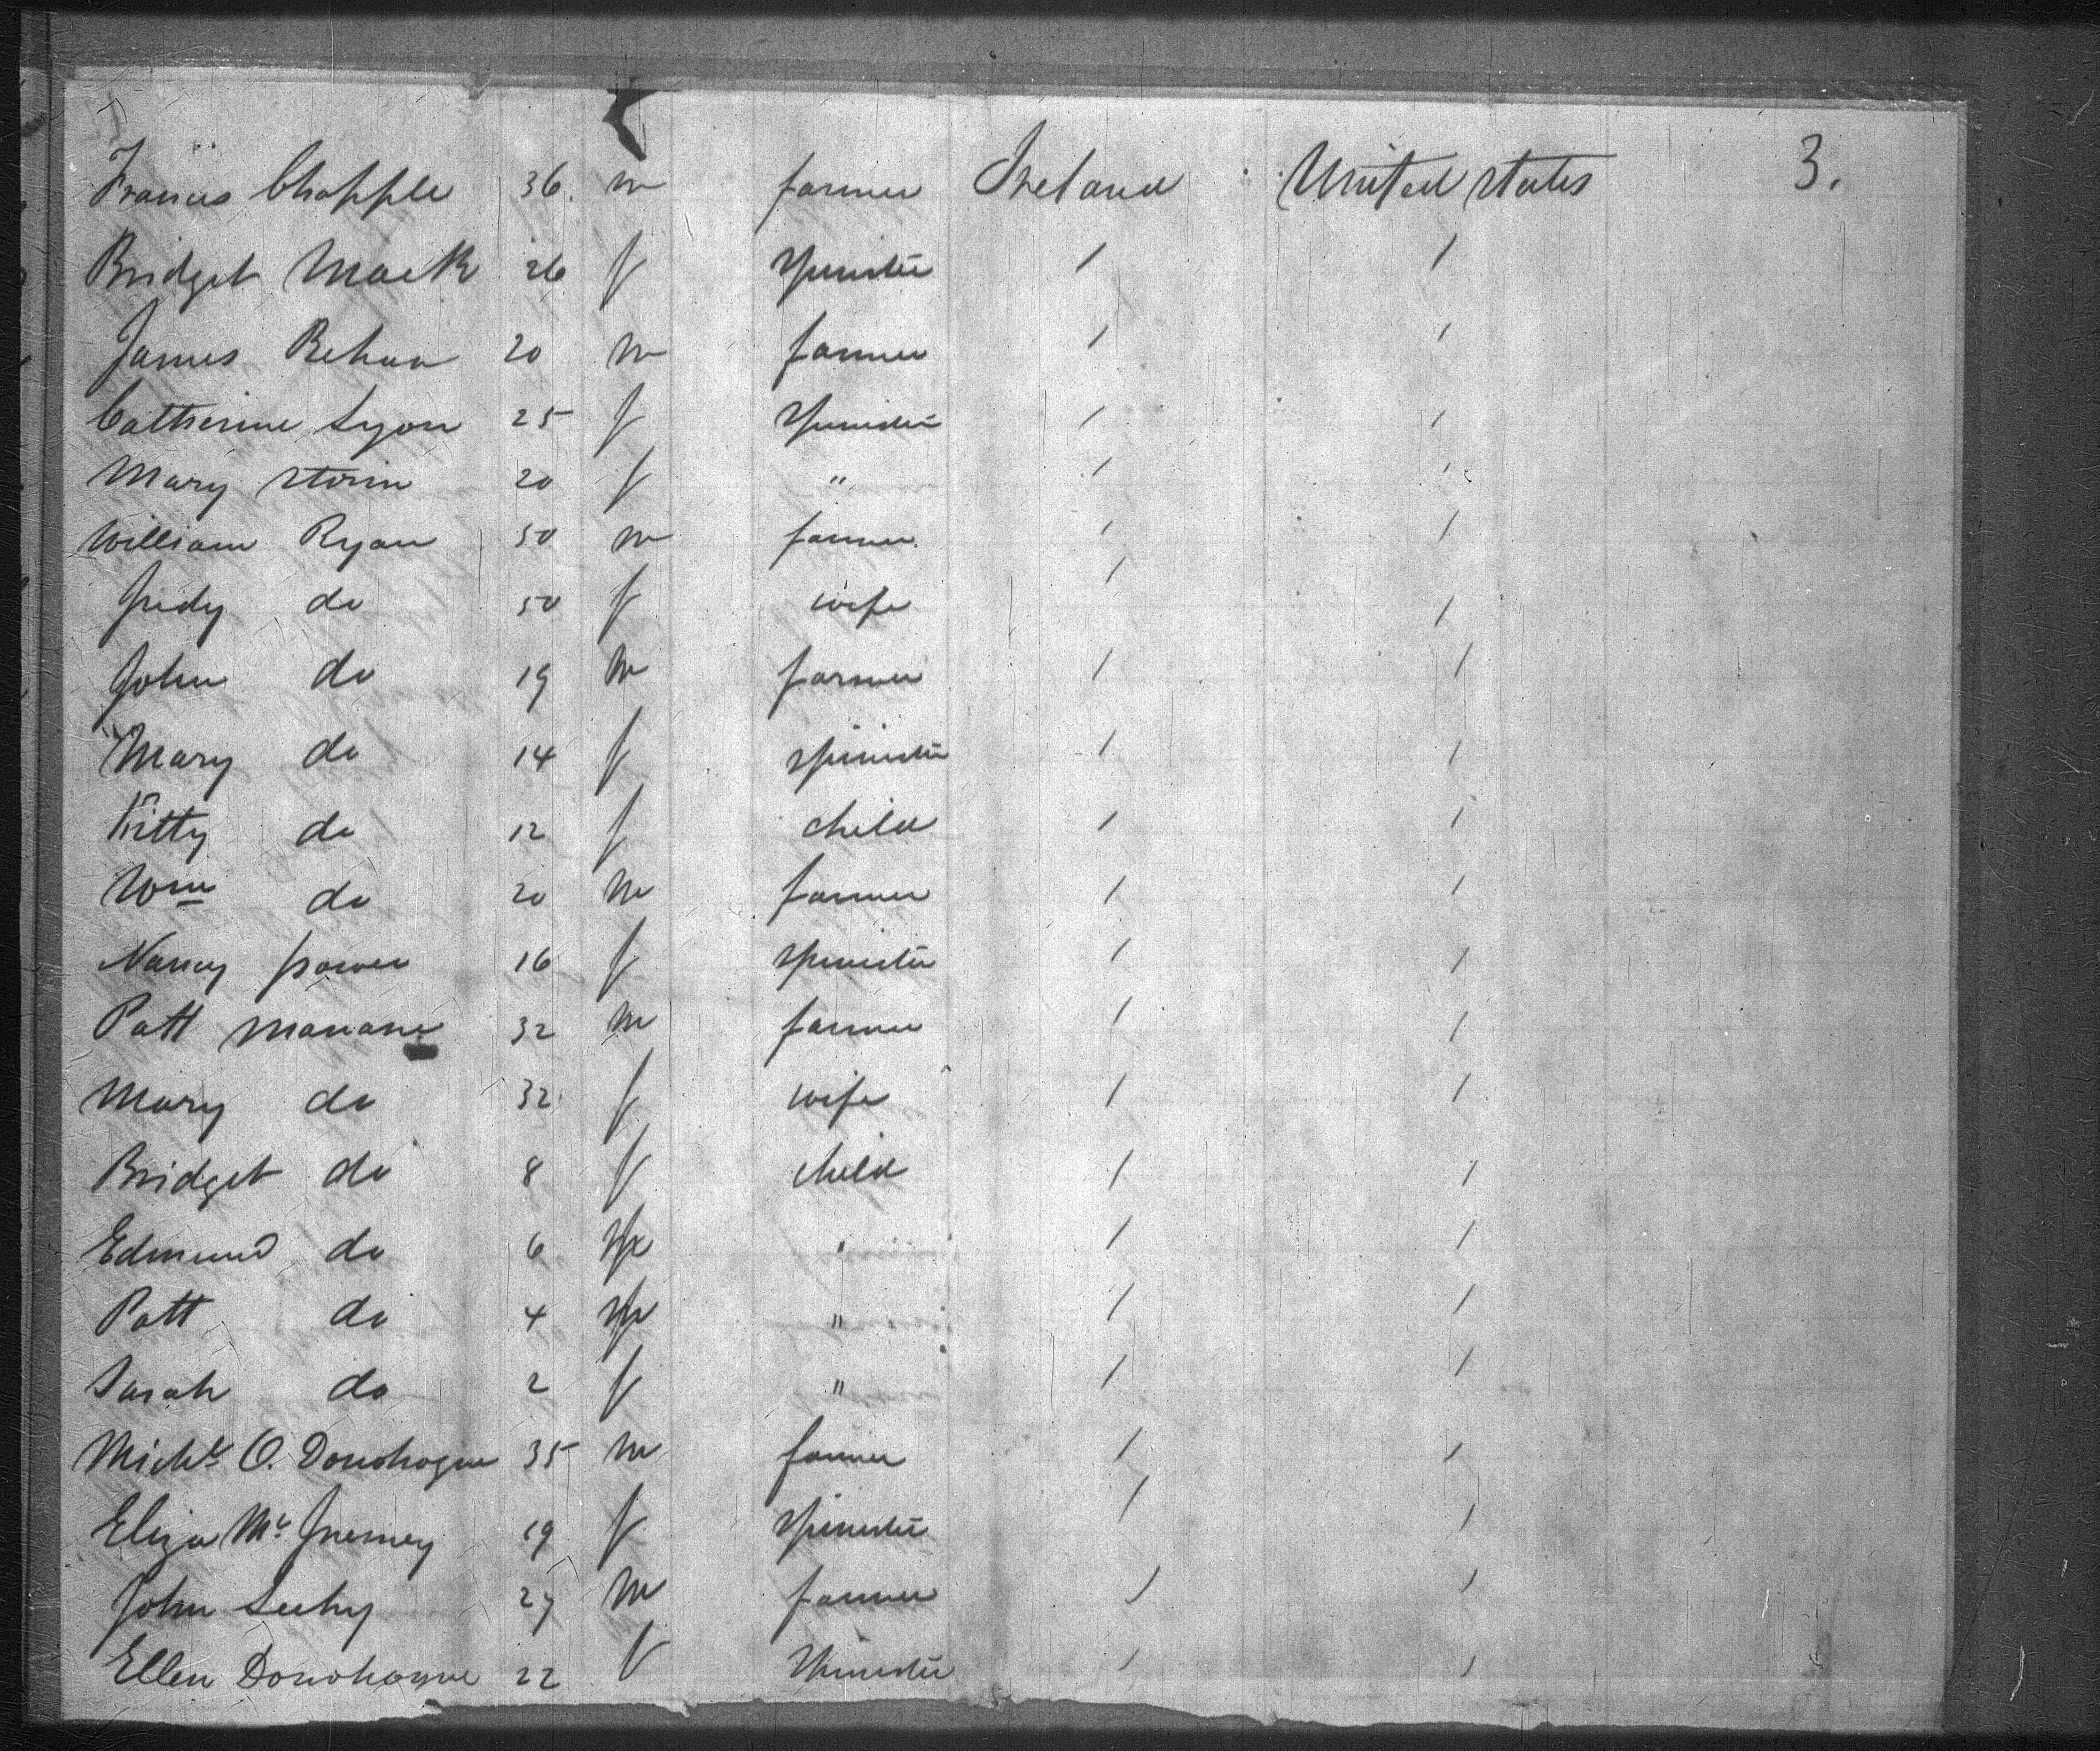 Francis Chapple 36. m farmer Ireland United states 3.
Bridget Mack 26 f spinster / /
James Behan 20 m farmer / /
Catherine Lyon 25 f spinster / /
Mary 20 f " / /
William Ryan 50 m farmer / /
Judy do 50 f wife / /
John do 19 m farmer / /
Mary do 14 f spinster / /
Kitty do 12 f child / /
Wm do 20 m farmer / /
Nancy power 16 f spinster / /
Patt 32 m farmer / /
Mary do 32 f wife / /
Bridget do 8 f child / /
Edmund do 6 m " / /
Patt do 4 m " / /
Sarah do 2 f " / /
Michl O. Donohogue 35 m farmer / /
Eliza Mc Inerney 19 f spinster / /
John 27 m farmer / /
Ellen Donohogue 22 f spinster / /